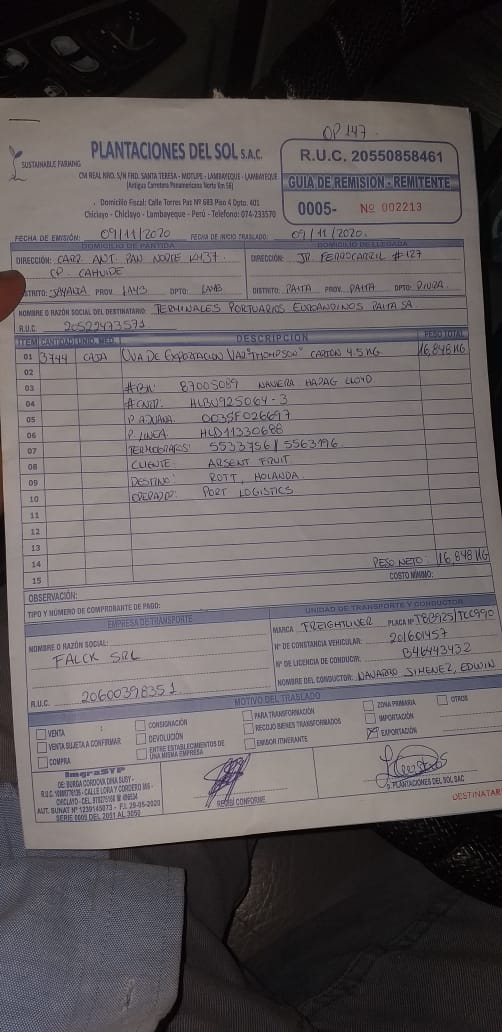 OP 147
SUSTAINABLE FARMING
PLANTACIONES DEL SOL S.A.C.
CM REAL NRO. S/N FND. SANTA TERESA - MOTUPE - LAMBAYEQUE - LAMBAYEQUE
(Antigua Carretera Panamericana Norte Km 56)
Domicilio Fiscal: Calle Torres Paz Nº 683 Piso 4 Dpto. 401
Chiclayo - Chiclayo - Lambayeque - Perú - Telefono: 074-233570
R.U.C. 20550858461
GUIA DE REMISION - REMITENTE
0005- Nº 002213
FECHA DE EMISIÓN: 09/11/2020 FECHA DE INICIO TRASLADO: 09/11/2020.
DOMICILIO DE PARTIDA DOMICILIO DE LLEGADA
DIRECCIÓN: CARR. ANT. PAN NORTE K437. DIRECCIÓN: JR. FERROCARRIL #127
CP CAHUIDE
DISTRITO: PROV. LAMB DPTO: LAMB DISTRITO: PAITA PROV. PAITA DPTO: PIURA.
NOMBRE O RAZÓN SOCIAL DEL DESTINATARIO: TERMINALES PORTUARIOS EUROANDINOS PAITA SA
R.U.C. 20522473571
ITEM CANTIDAD UNID. MED. DESCRIPCION PESO TOTAL
01 3744 CAJA UVA DE EXPORTACION VAR "THOMPSON" CARTON 4.5 KG 16,848 KG
02
03 #BK: 87005089 NAVIERA HAPAG LLOYD
04 #CNTD: HLBU925064-3
05 P. ADUANA: 0035F026697
06 P. LINEA: HLD11330688
07 TERMOGRAFOS: 5533756 / 5563196
08 CLIENTE: ARSENT FRUIT
09 DESTINO: ROTT, HOLANDA.
10 OPERADOR: PORT LOGISTICS
11
12
13
14 PESO NETO: 16,848 KG
15 COSTO MÍNIMO:
OBSERVACIÓN:
TIPO Y NÚMERO DE COMPROBANTE DE PAGO:
EMPRESA DE TRANSPORTE UNIDAD DE TRANSPORTE Y CONDUCTOR
NOMBRE O RAZÓN SOCIAL: FALCK SRL
R.U.C. 20600398351
MARCA FREIGHTLINER PLACA Nº T8B925/TCC990
Nº DE CONSTANCIA VEHICULAR: 201601457
Nº DE LICENCIA DE CONDUCIR: B46443432
NOMBRE DEL CONDUCTOR: NAVARRO JIMENEZ, EDWIN
MOTIVO DEL TRASLADO
VENTA CONSIGNACIÓN PARA TRANSFORMACIÓN ZONA PRIMARIA OTROS
VENTA SUJETA A CONFIRMAR DEVOLUCIÓN RECOJO BIENES TRANSFORMADOS IMPORTACIÓN
COMPRA ENTRE ESTABLECIMIENTOS DE UNA MISMA EMPRESA EMISOR ITINERANTE EXPORTACIÓN
ImgraSYP
DE: BURGA CORDOVA DINA SUDY -
AUT. SUNAT Nº 1239145073 - F.I. 29-05-2020
SERIE 0005 DEL 2051 AL 3050
RECIBÍ CONFORME
P. PLANTACIONES DEL SOL SAC
DESTINATAR